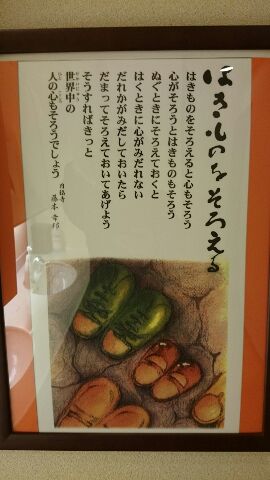 はきものをそろえる
はきものをそろえると心もそろう
心がそろうとはきものもそろう
ぬぐときにそろえておくと
はくときに心がみだれない
だれかがみだしておいたら
だまってそろえておいてあげよう
そうすればきっと
世界中の
人の心もそろうでしょう
円福寺
藤本幸邦